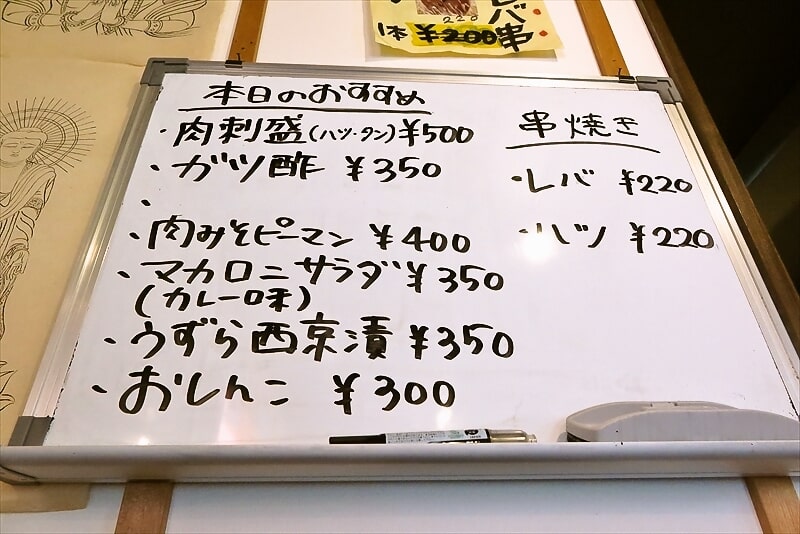 レバ串
220
1本 ¥200
本日のおすすめ
・肉刺盛(ハツ・タン)¥500
・ガツ酢 ¥350
・
・肉みそピーマン ¥400
・マカロニサラダ ¥350
(カレー味)
・うずら西京漬 ¥350
・おしんこ ¥300
串焼き
・レバ ¥220
・ハツ ¥220